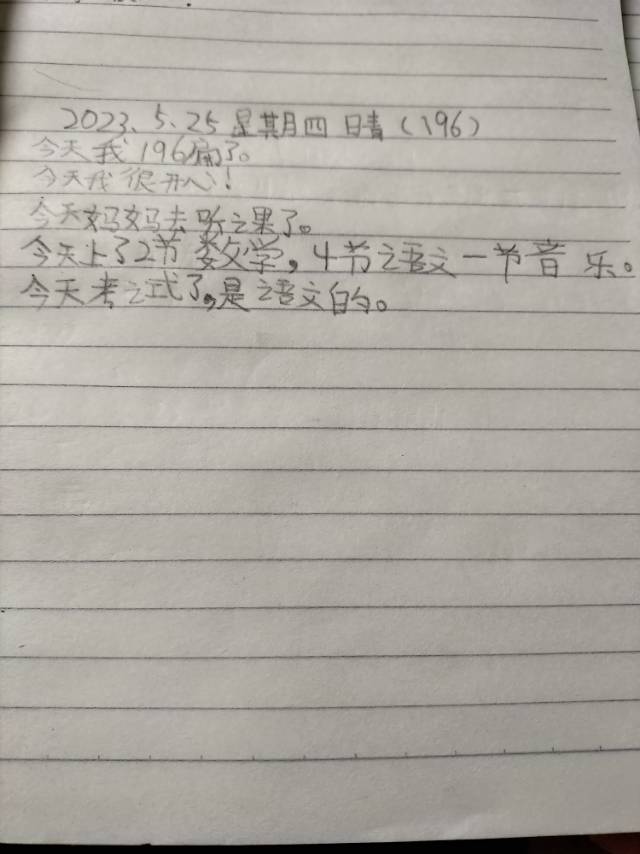 2023.5.25 星期四 晴 (196)
今天我196篇了。
今天我很开心!
今天妈妈去听课了。
今天上了2节数学,4节语文一节音乐。
今天考试了,是语文的。